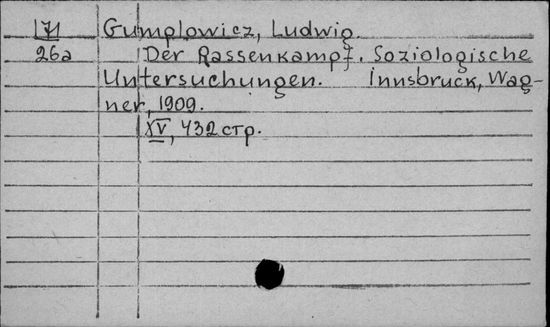 Gumplowicz, Ludwig.
26a Der Rassenkampf. Soziologische
Untersuchungen. Innsbruck, Wag-
ner, 1909.
XV, 432 стр.